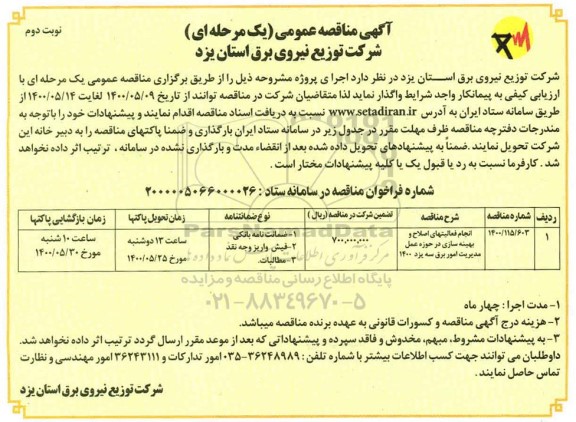 نوبت دوم
آگهی مناقصه عمومی (یک مرحله ای)
شرکت توزیع نیروی برق استان یزد
شرکت توزیع نیروی برق استان یزد در نظر دارد اجرا ی پروژه مشروحه ذیل را از طریق برگزاری مناقصه عمومی یک مرحله ای با
ارزیابی کیفی به پیمانکار واجد شرایط واگذار نماید لذا متقاضیان شرکت در مناقصه توانند از تاریخ ۱۴۰۰/۰۵/۰۹ لغایت ۱۴۰۰/۰۵/۱۴ از
طریق سامانه ستاد ایران به آدرس www.setadiran.ir نسبت به دریافت اسناد مناقصه اقدام نمایند و پیشنهادات خود را باتوجه به
مندرجات دفترچه مناقصه ظرف مهلت مقرر در جدول زیر در سامانه ستاد ایران بارگذاری و ضمنا پاکتهای مناقصه را به دبیر خانه این
شرکت تحویل نمایند .ضمناً به پیشنهادهای تحویل داده شده بعد از انقضاء مدت و بارگذاری نشده در سامانه ، ترتیب اثر داده نخواهد
شد . کارفرما نسبت به رد یا قبول یک یا کلیه پیشنهادات مختار است .
شماره فراخوان مناقصه در سامانه ستاد : ۲۰۰۰۰۰۵۰۶۶۰۰۰۰۲۶
ردیف شماره مناقصه شرح مناقصه تضمین شرکت در مناقصه (ریال) نوع ضمانتنامه زمان تحویل پاکتها زمان بازگشایی پاکتها
۱ ۱۴۰۰/۱۱۵/۶۰۳ انجام فعالیتهای اصلاح و بهینه سازی در حوزه عمل مدیریت امور برق سه یزد ۱۴۰۰ ۷۰۰,۰۰۰,۰۰۰ ۱-ضمانت نامه بانکی ۲-فیش واریز وجه نقد ۳-مطالبات. ساعت ۱۳ دوشنبه مورخ ۱۴۰۰/۰۵/۲۵ ساعت ۱۰ شنبه مورخ ۱۴۰۰/۰۵/۳۰
ParsNamadData
پایگاه اطلاع رسانی مناقصه و مزایده
۰۲۱-۸۸۳۴۹۶۷۰-۵
۱- مدت اجرا : چهار ماه
۲- هزینه درج آگهی مناقصه و کسورات قانونی به عهده برنده مناقصه میباشد.
۳- به پیشنهادات مشروط، مبهم، مخدوش و فاقد سپرده و پیشنهاداتی که بعد از موعد مقرر ارسال گردد ترتیب اثر داده نخواهد شد.
داوطلبان می توانند جهت کسب اطلاعات بیشتر با شماره تلفن : ۳۶۲۴۸۹۸۹-۰۳۵ امور تدارکات و ۳۶۲۴۳۱۱۱ امور مهندسی و نظارت
تماس حاصل نمایند .
شرکت توزیع نیروی برق استان یزد